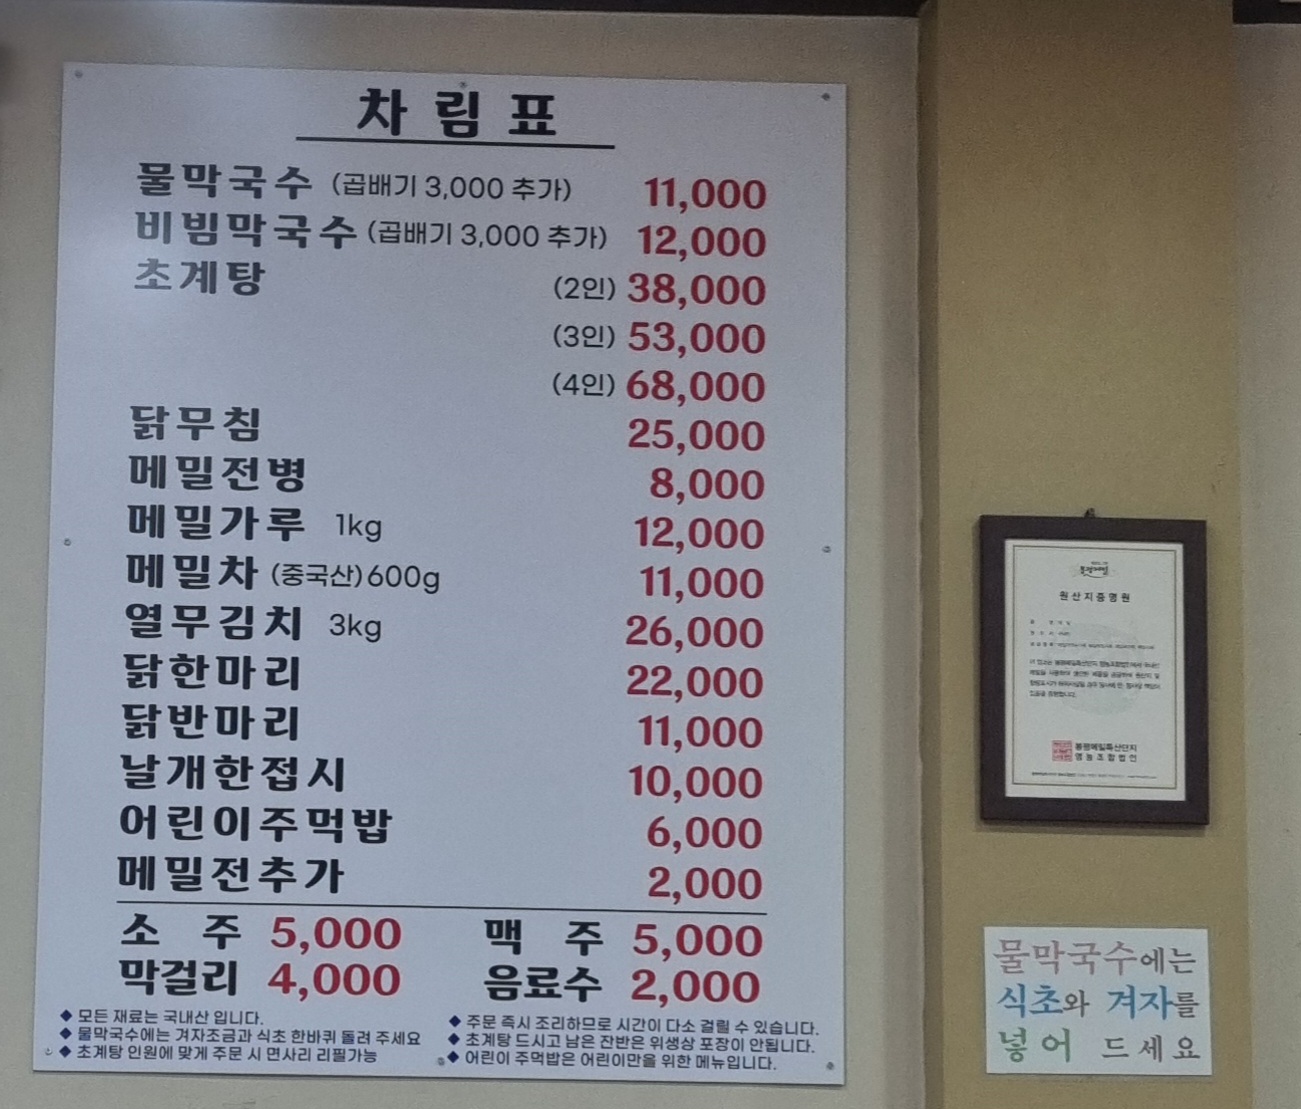 차림표
물막국수 (곱배기 3,000 추가) 11,000
비빔막국수 (곱배기 3,000 추가) 12,000
초계탕 (2인) 38,000
(3인) 53,000
(4인) 68,000
닭무침 25,000
메밀전병 8,000
메밀가루 1kg 12,000
메밀차 (중국산)600g 11,000
열무김치 3kg 26,000
닭한마리 22,000
닭반마리 11,000
날개한접시 10,000
어린이주먹밥 6,000
메밀전추가 2,000
소주 5,000 맥주 5,000
막걸리 4,000 음료수 2,000
◆ 모든 재료는 국내산 입니다.
◆ 물막국수에는 겨자조금과 식초 한바퀴 돌려 주세요
◆ 초계탕 인원에 맞게 주문 시 면사리 리필가능
◆ 주문 즉시 조리하므로 시간이 다소 걸릴 수 있습니다.
◆ 초계탕 드시고 남은 잔반은 위생상 포장이 안됩니다.
◆ 어린이 주먹밥은 어린이만을 위한 메뉴입니다.
원산지증명원
봉평메밀특산단지
영농조합법인
물막국수에는
식초와 겨자를
넣어 드세요